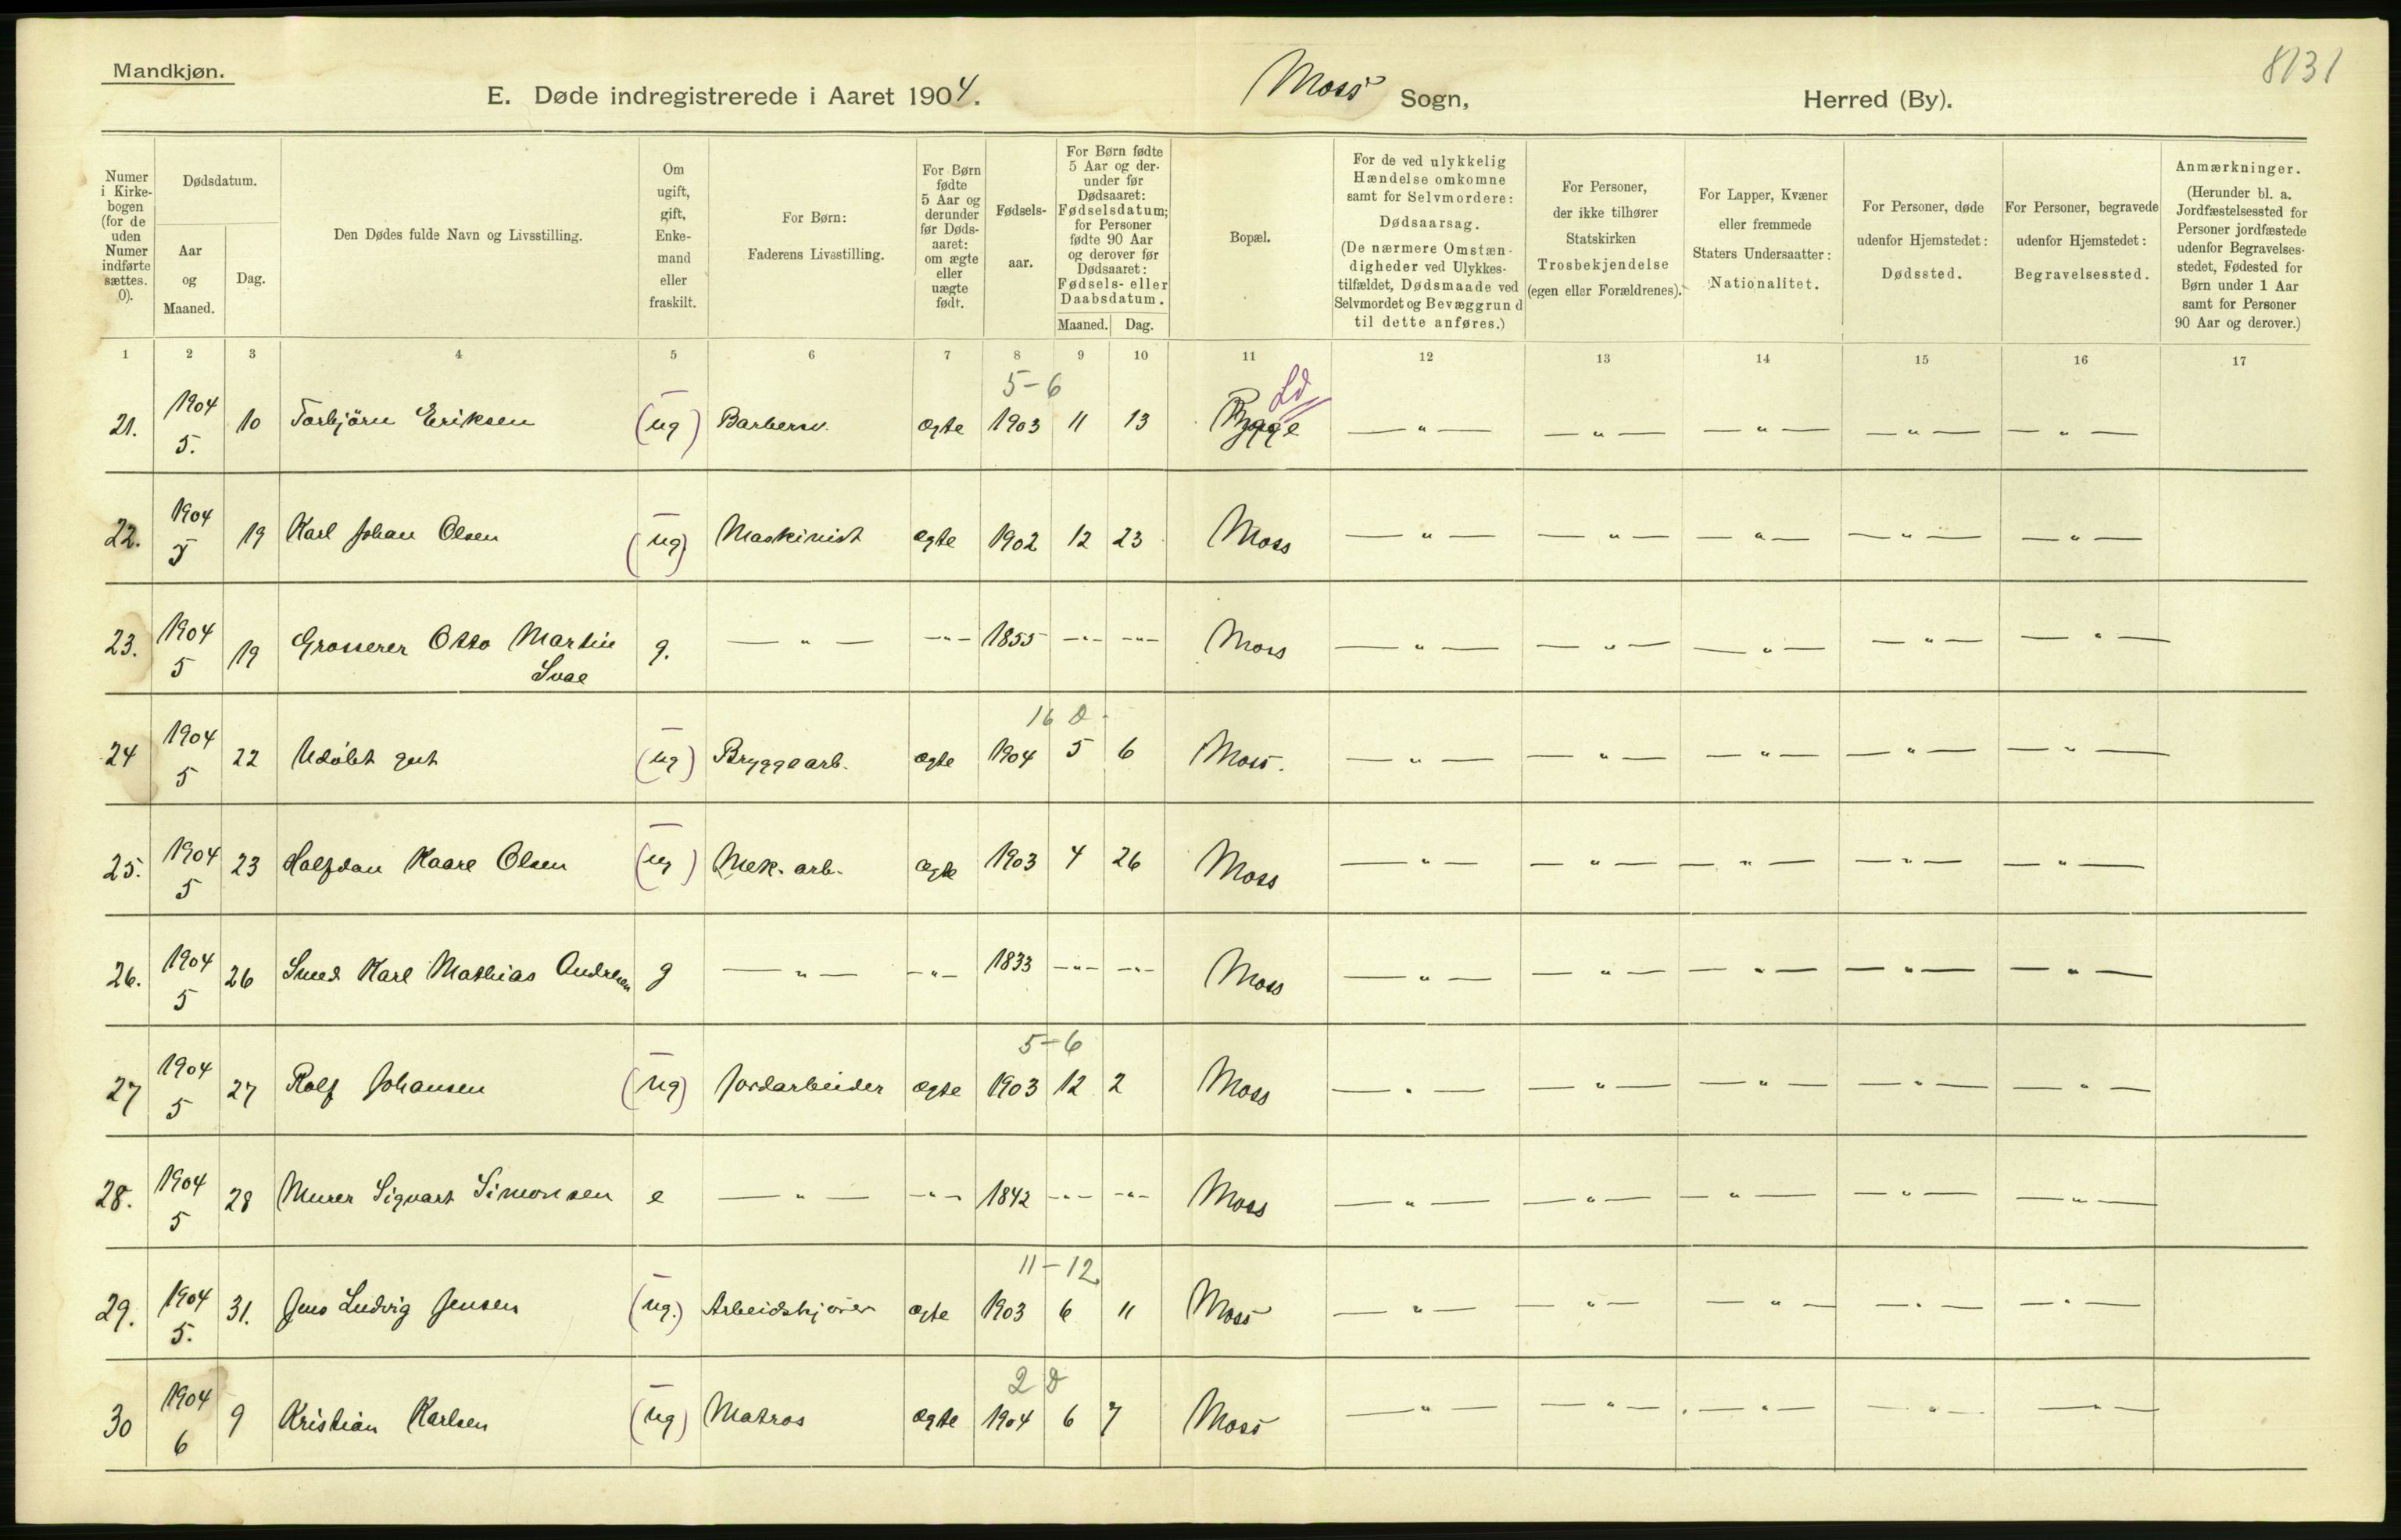 Mandkjøn.
8131
E. Døde indregistrerede i Aaret 1904. Moss Sogn, Herred (By).
Numer i Kirkebogen (for de uden Numer indførte sættes. 0).
Dødsdatum.
Aar og Maaned.
Dag.
Den Dødes fulde Navn og Livsstilling.
Om ugift, gift, Enkemand eller fraskilt.
For Børn: Faderens Livsstilling.
For Børn fødte 5 Aar og derunder før Dødsaaret: om ægte eller uægte født.
Fødselsaar.
For Børn fødte 5 Aar og derunder før Dødsaaret: Fødselsdatum; for Personer fødte 90 Aar og derover før Dødsaaret: Fødsels- eller Daabsdatum.
Maaned. Dag.
Bopæl.
For de ved ulykkelig Hændelse omkomne samt for Selvmordere: Dødsaarsag. (De nærmere Omstændigheder ved Ulykkestilfældet, Dødsmaade ved Selvmordet og Bevæggrund til dette anføres.)
For Personer, der ikke tilhører Statskirken Trosbekjendelse (egen eller Forældrenes).
For Lapper, Kvæner eller fremmede Staters Undersaatter: Nationalitet.
For Personer, døde udenfor Hjemstedet: Dødssted.
For Personer, begravede udenfor Hjemstedet: Begravelsessted.
Anmærkninger. (Herunder bl. a. Jordfæstelsessted for Personer jordfæstede udenfor Begravelsesstedet, Fødested for Børn under 1 Aar samt for Personer 90 Aar og derover.)
1 2 3 4 5 6 7 8 9 10 11 12 13 14 15 16 17
5-6 Ld
21. 1904 5. 10 Torbjörn Eriksen (ug) Barbersv. ægte 1903 11 13 Rygge — " — — " — — " — — " — — " —
22. 1904 5 19 Karl Johan Olsen (ug) Maskinist ægte 1902 12 23 Moss — " — — " — — " — — " — — " —
23. 1904 5 19 Grosserer Otto Martin Svae g. — " — -"- 1855 -"- -"- Moss — " — — " — — " — — " — — " —
16 D
24 1904 5 22 Udöbt gut (ug) Bryggearb. ægte 1904 5 6 Moss. — " — — " — — " — — " — — " —
25. 1904 5 23 Halfdan Kaare Olsen (ug) Mek. arb. ægte 1903 4 26 Moss — " — — " — — " — — " — — " —
26. 1904 5 26 Smed Karl Mathias Andresen g — " — -"- 1833 -"- -"- Moss — " — — " — — " — — " — — " —
5-6
27 1904 5 27 Rolf Johansen (ug) Jordarbeider ægte 1903 12 2 Moss — " — — " — — " — — " — — " —
28. 1904 5 28 Murer Sigvart Simonsen e — " — -"- 1842 -"- -"- Moss — " — — " — — " — — " — — " —
11-12
29. 1904 5. 31. Jens Ludvig Jensen (ug.) Arbeidskjører ægte 1903 6 11 Moss — " — — " — — " — — " — — " —
2 D
30 1904 6 9 Kristian Karlsen (ug) Matros ægte 1904 6 7 Moss — " — — " — — " — — " — — " —